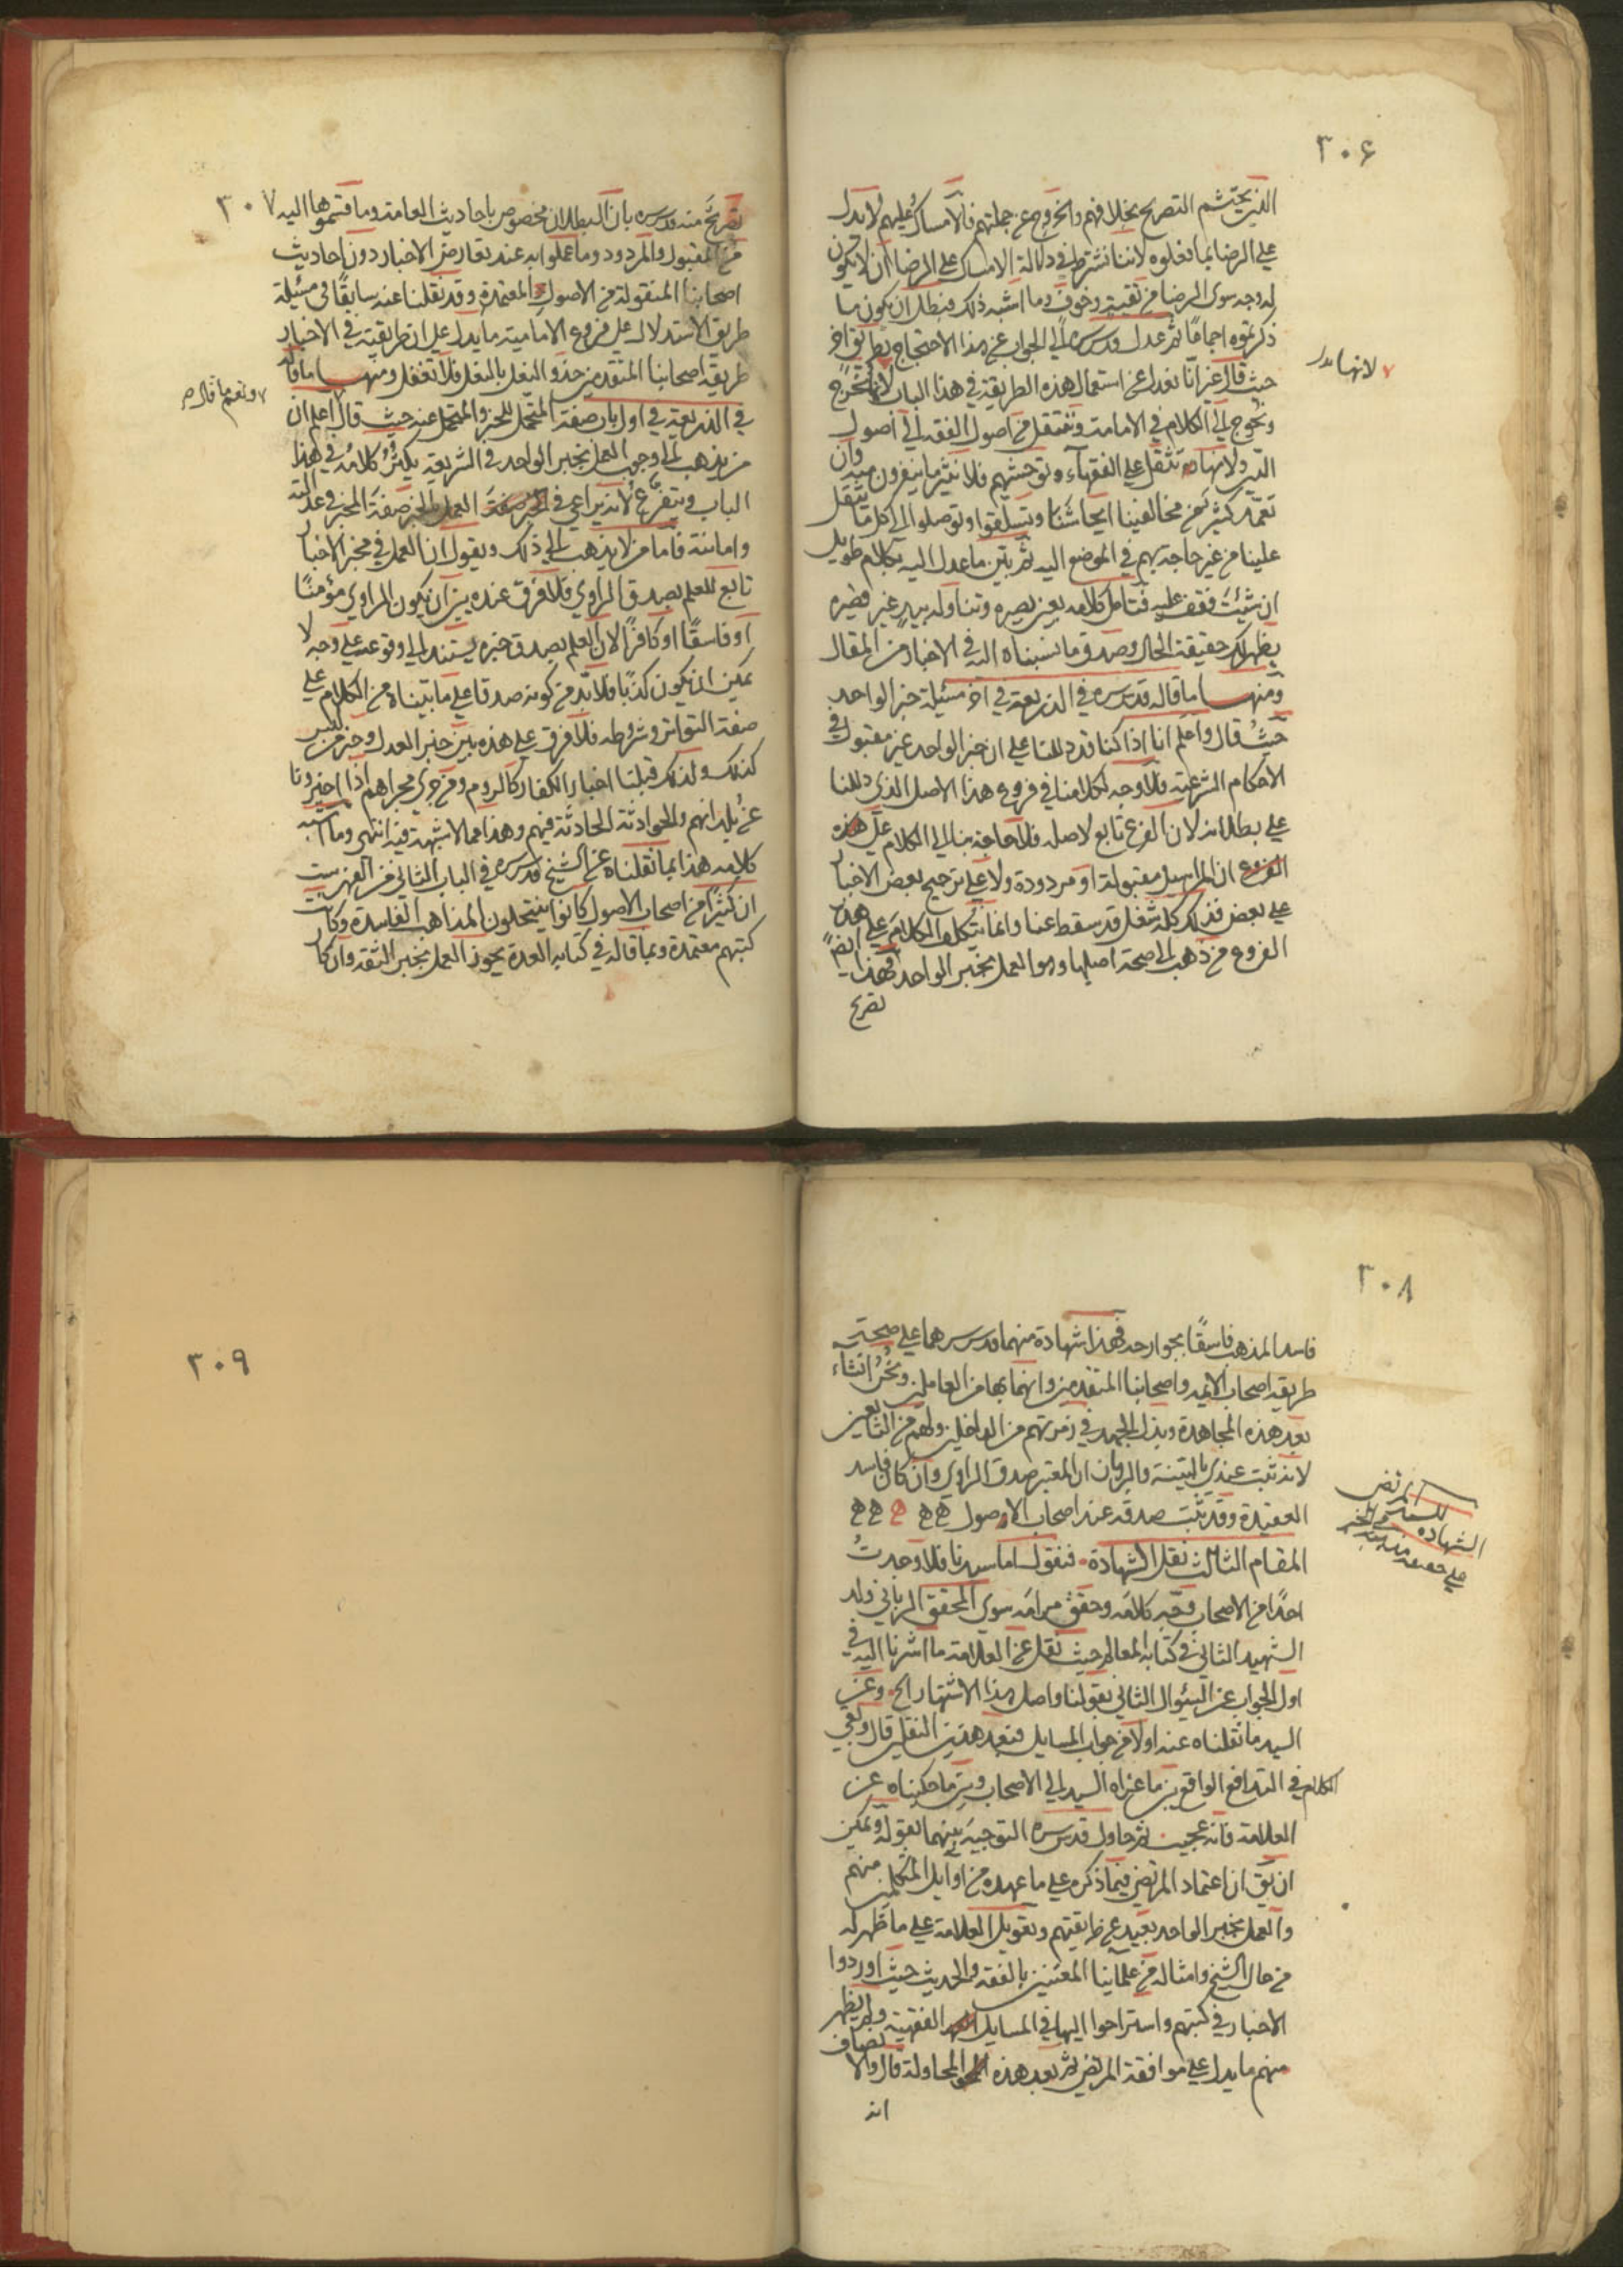 ٣٠۶
الذين يحتشم التصريح بخلافهم والخروج عن جملتهم فالامساك عليهم لا يدل
علي الرضا بما فعلوه لاننا نشترط في دلالة الامساك علي الرضا ان لا يكون
له وجه سوى الرضا من تقية وخوف وما اشبه ذلك فبطل ان يكون ما
ذكرتموه اجماعا ثم عدل قدس سره الي الجواب عن هذا الاحتجاج بطريق آخر
حيث قال غير انا نعدل عن استعمال هذه الطريقة في هذا الباب لانها تخرج
لانها تدل
وتحوج الي الكلام في الامامة وننتقل من اصول الفقه الي اصول
الدين ولانها تثقل علي الفقهاء وتوحشهم فلا نثير ما ينفرون منه وان
تعمد كثير من مخالفينا ايحاشنا وتسلقوا وتوصلوا الي كل ما يثقل
علينا من غير حاجة بهم في الموضع اليه ثم بين ما عدل اليه بكلام طويل
ان شئت فقف عليه فتامل كلامه بعين بصيرة وتناوله بيد غير قصيرة
يظهر لك حقيقة الحال وصدق ما نسبناه اليه في الاخبار من المقال
ومنها ما قاله قدس سره في الذريعة في آخر مسئلة خبر الواحد
حيث قال واعلم انا اذا كنا قد دللنا علي ان خبر الواحد غير مقبول في
الاحكام الشرعية فلا وجه لكلامنا في فروع هذا الاصل الذي دللنا
علي بطلانه لان الفرع تابع لاصله فلا حاجة بنا الي الكلام علي هذه
الفروع ان المراسيل مقبولة او مردودة ولا علي ترجيح بعض الاخبار
علي بعض فذلك كله شغل قد سقط عنا وانما يتكلف الكلام علي هذه
الفروع من ذهب الي صحة اصلها وهو العمل بخبر الواحد فهذا ايضا
تصريح
٣٠٧
تصريح منه قدس سره بان البطلان مخصوص باحاديث العامة وما قسموها اليه
من المقبول والمردود وما عملوا به عند تعارض الاخبار دون احاديث
اصحابنا المنقولة من الاصول المعتمدة وقد نقلنا عنه سابقا في مسئلة
طريق الاستدلال علي فروع الامامية ما يدل علي ان طريقته في الاخبار
طريقة اصحابنا المتقدمين حذو النعل بالنعل فلا تغفل ومنها ما قاله
في الذريعة في اول باب صفة المتحمل للخبر والمتحمل عنه حيث قال اعلم ان
من يذهب الي وجوب العمل بخبر الواحد في الشريعة يكثر كلامه في هذا
الباب ويتفرع لانه يراعي في العمل بالخبر صفة المخبر في عدالته
وامانته فاما من لا يذهب الي ذلك ويقول ان العمل في مخبر الاخبار
تابع للعلم بصدق الراوي فلا فرق عنده بين ان يكون الراوي مؤمنا
او فاسقا او كافرا لان العلم بصدق خبره يستند الي وقوعه علي وجه لا
يمكن ان يكون كذبا فلا بد من كونه صدقا علي ما بيناه من الكلام علي
صفة التواتر وشروطه فلا فرق علي هذه بين خبر العدل وخبر من ليس
كذلك ولذلك قبلنا اخبار الكفار كالروم ومن جري مجراهم اذا اخبرونا
عن بلدانهم والحوادثة الحادثة فيهم وهذا مما لا شبهة فيه انتهي وما اشبه
كلامه هذا بما نقلناه عن الشيخ قدس سره في الباب الثاني من الفهرست
ان كثيرا من اصحاب الاصول كانوا ينتحلون المذاهب الفاسدة وكانت
كتبهم معتمدة وبما قاله في كتابه العدة يجوز العمل بخبر الثقة وان كان
٣٠٨
فاسد المذهب فاسقا بجوارحه فهذا شهادة منهما قدس سرهما علي صحة
طريقة اصحاب الائمه واصحابنا المتقدمين وانهما بها من العاملين ونحن انشاء
بعد هذه المجاهدة وبذل الجهد في زمرتهم من الداخلين ولهم من التابعين
لانه ثبت عندي بالبينة والبرهان ان المعتبر صدق الراوي وان كان فاسد
العقيدة وقد ثبت صدقه عند اصحاب الاصول
المقام الثالث نقل الشهادة فنقول اما سيدنا فلا وجدت
احدا من الاصحاب وجه كلامه وحقق مرامه سوي المحقق الرباني ولد
الشهيد الثاني في كتابه المعالم حيث نقل عن العلامة ما اشرنا اليه في
اول الجواب عن السئوال الثاني بقولنا واصل هذا الاشتهار الخ وعن
السيد ما نقلناه عنه اولا من جواب المسايل فبعد هذين النقلين قال وبقي
الكلام في التدافع الواقع بين ما عزاه السيد الي الاصحاب وبين ما حكيناه عن
العلامة فانه عجيب ثم حاول قدس سره التوجيه بينهما بقوله ويمكن
ان يق ان اعتماد المرتضي فيما ذكره علي ما عهده من اوايل المتكلمين منهم
والعمل بخبر الواحد بعيد عن طريقتهم وتعويل العلامة علي ما ظهر له
من حال الشيخ وامثاله من علمائنا المعتنين بالفقه والحديث حيث اوردوا
الاخبار في كتبهم واستراحوا اليها في المسايل الفقهية ولم يظهر
منهم ما يدل علي موافقة المرتضي ثم بعد هذه المحاولة قال والانصاف
انه
٣٠٩